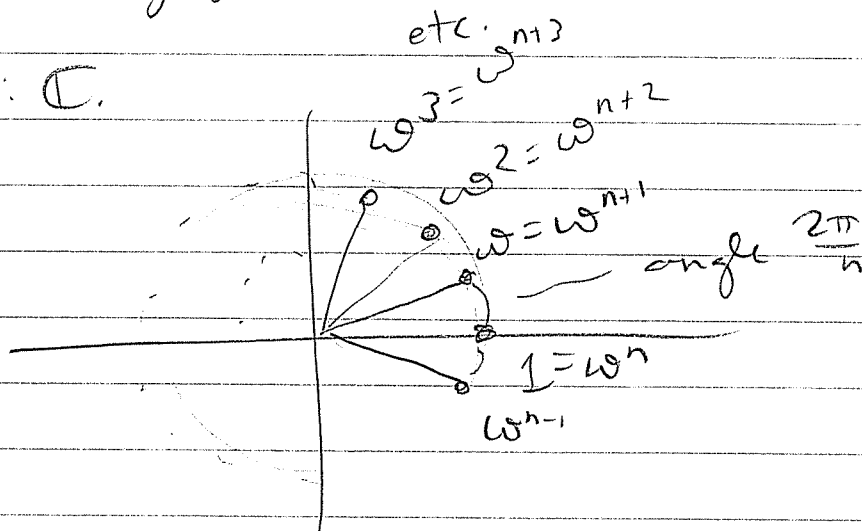 etc.
: ℂ.
ω³ = ω^{n+3}
ω² = ω^{n+2}
ω = ω^{n+1}
angle 2π/n
1 = ω^n
ω^{n-1}